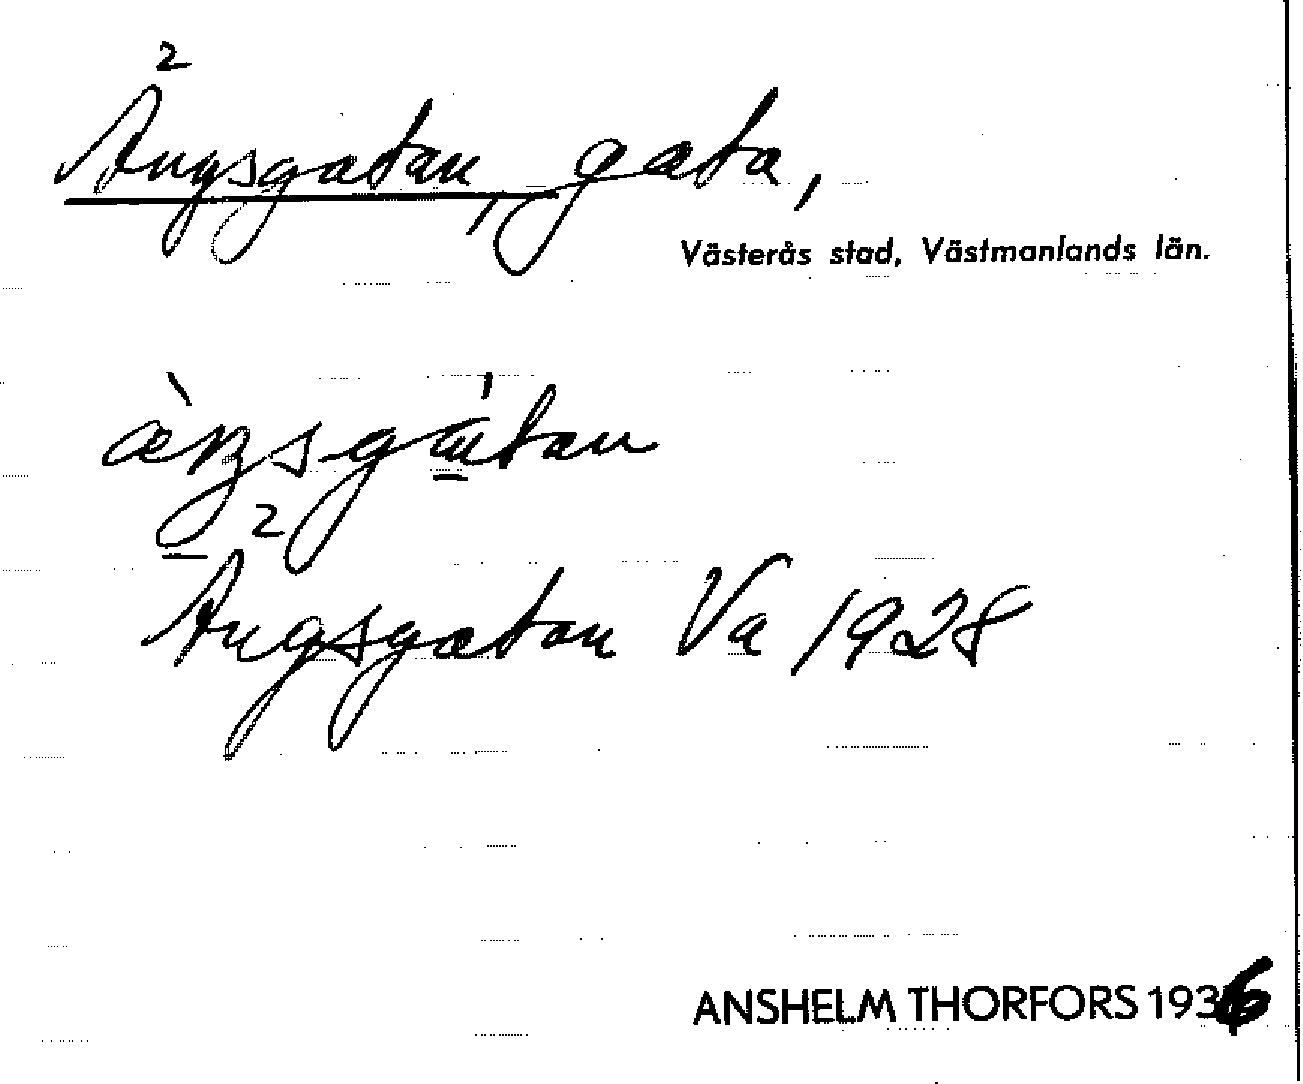 Ängsgatan, gata,
Västerås stad, Västmanlands län.
Ängsgatan Va 1928
ANSHELM THORFORS 1936